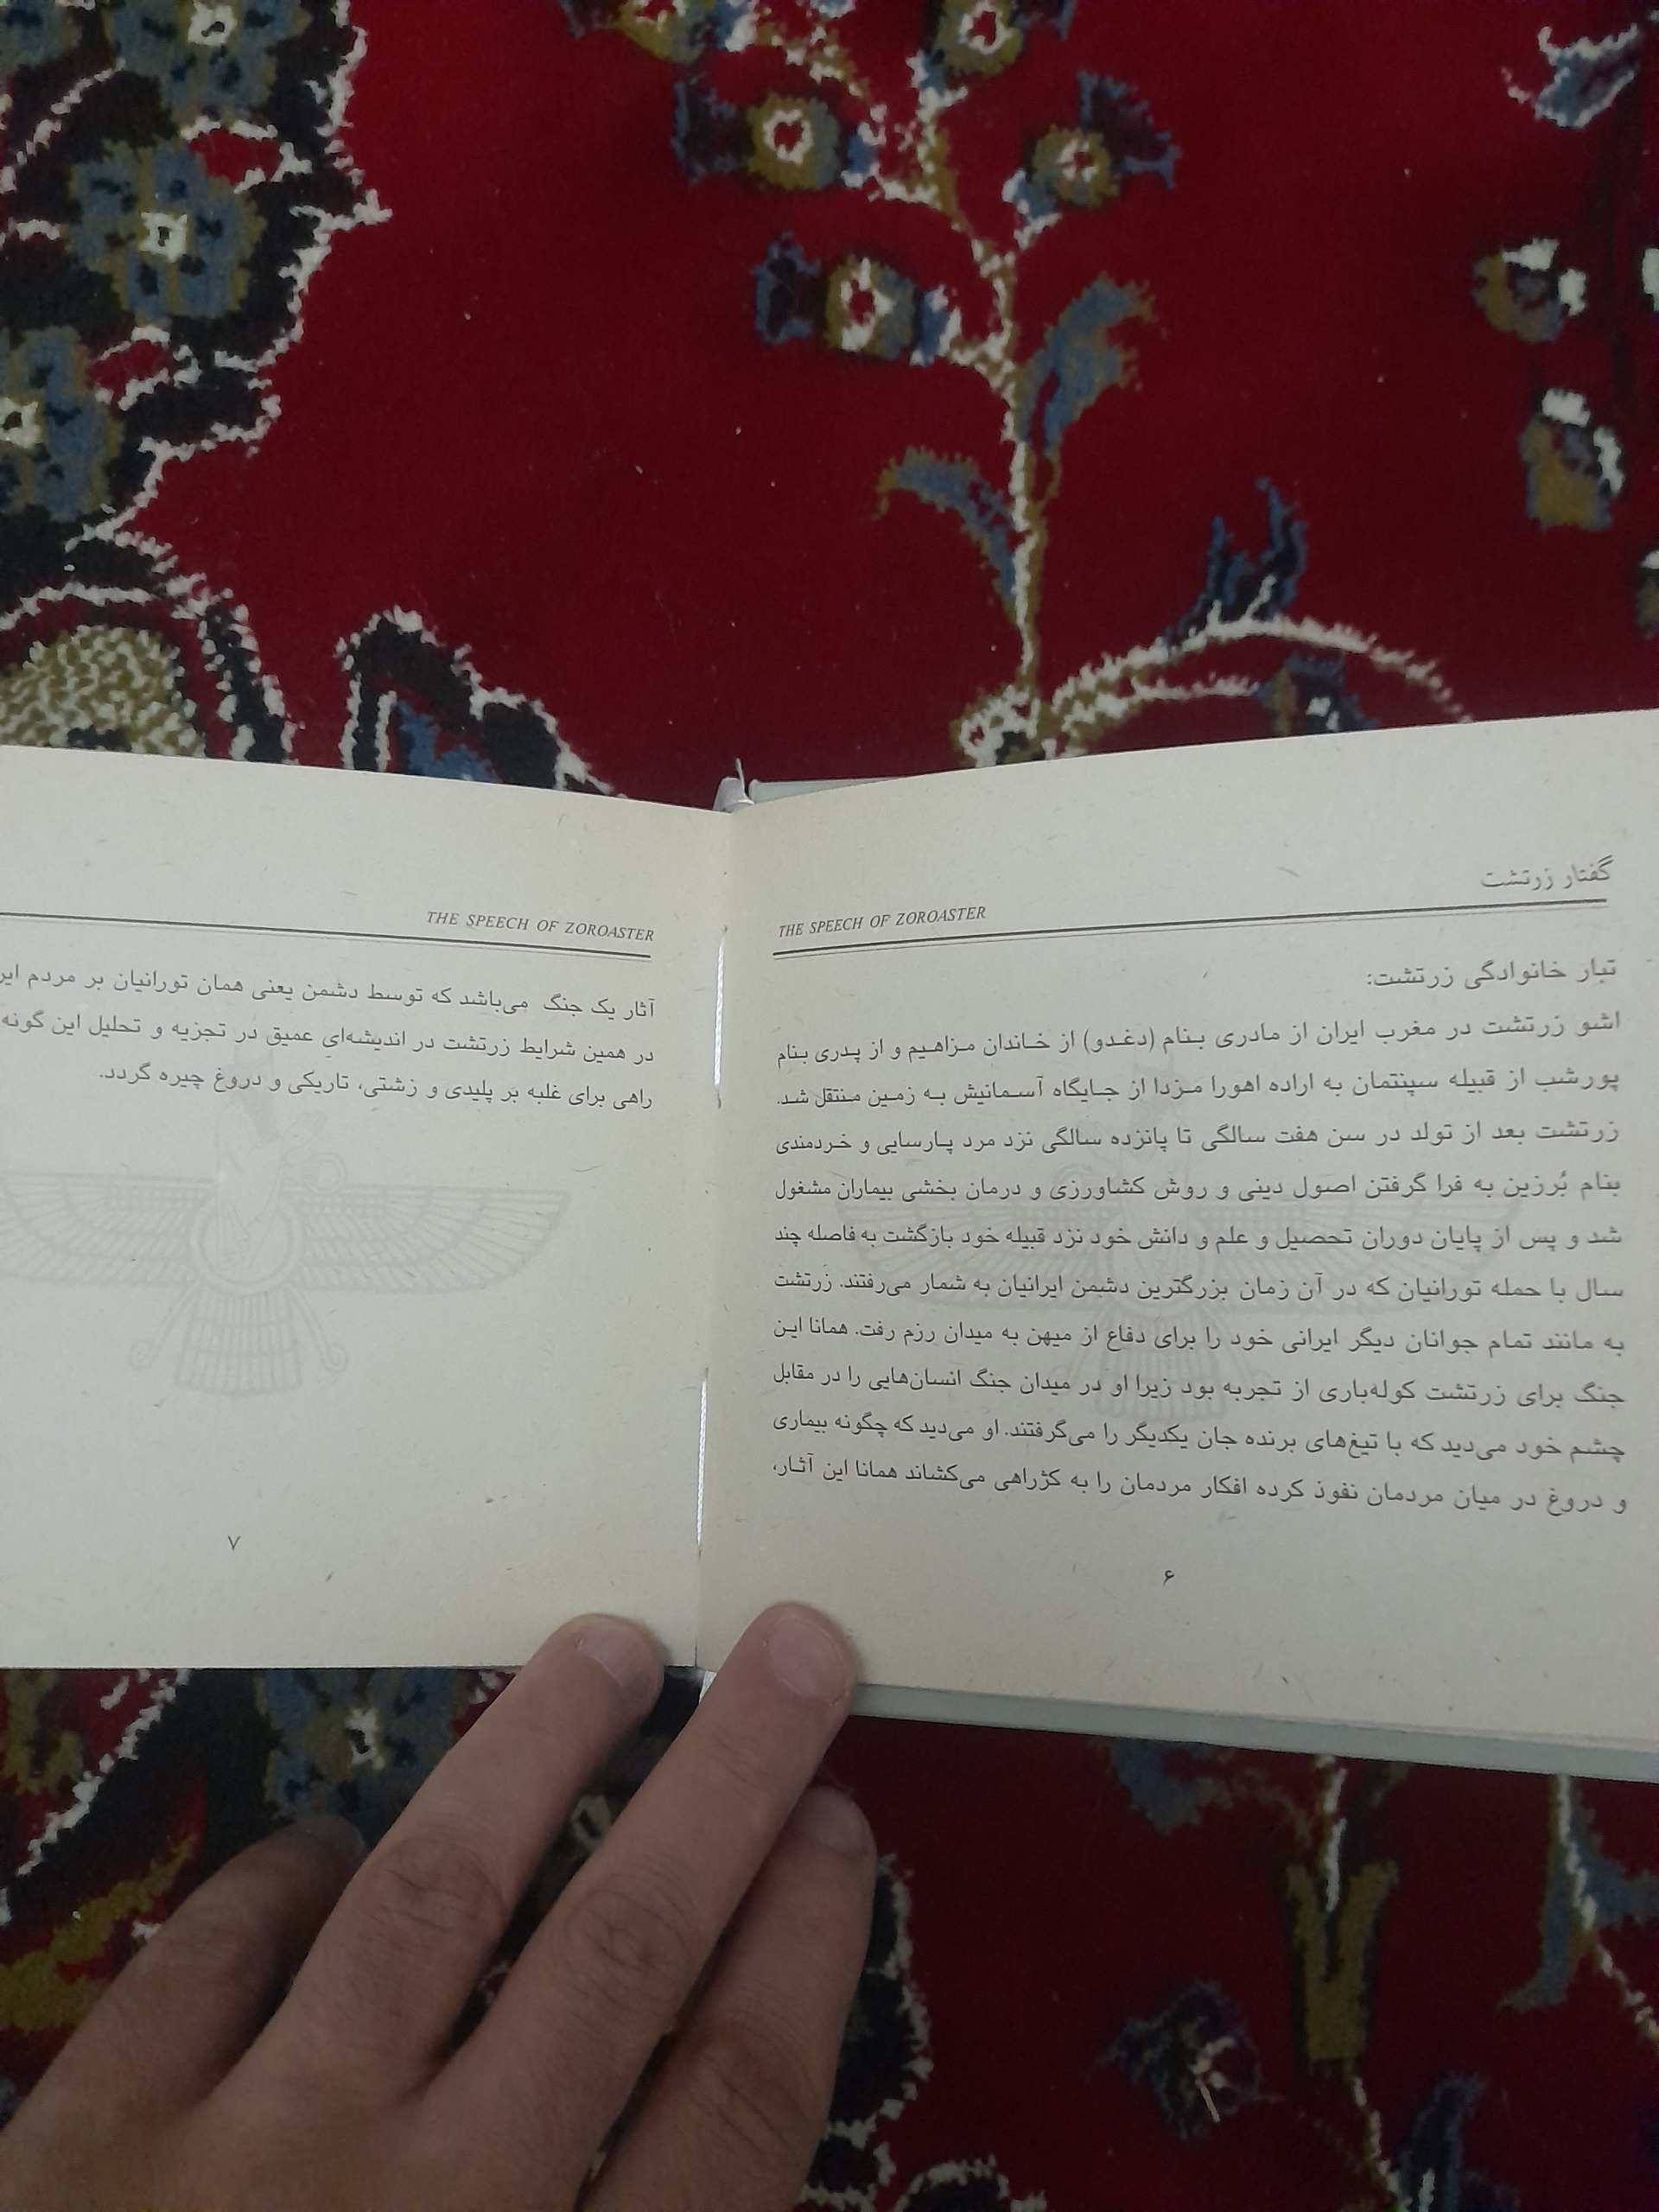 گفتار زرتشت
THE SPEECH OF ZOROASTER
تبار خانوادگی زرتشت:
اشو زرتشت در مغرب ایران از مادری بنام (دغدو) از خاندان مزاهیم و از پدری بنام
پورشب از قبیله سپنتمان به اراده اهورا مزدا از جایگاه آسمانیش به زمین منتقل شد.
زرتشت بعد از تولد در سن هفت سالگی تا پانزده سالگی نزد مرد پارسایی و خردمندی
بنام بُرزین به فرا گرفتن اصول دینی و روش کشاورزی و درمان بخشی بیماران مشغول
شد و پس از پایان دوران تحصیل و علم و دانش خود نزد قبیله خود بازگشت به فاصله چند
سال با حمله تورانیان که در آن زمان بزرگترین دشمن ایرانیان به شمار می‌رفتند. زرتشت
به مانند تمام جوانان دیگر ایرانی خود را برای دفاع از میهن به میدان رزم رفت. همانا این
جنگ برای زرتشت کوله‌باری از تجربه بود زیرا او در میدان جنگ انسان‌هایی را در مقابل
چشم خود می‌دید که با تیغ‌های برنده جان یکدیگر را می‌گرفتند. او می‌دید که چگونه بیماری
و دروغ در میان مردمان نفوذ کرده افکار مردمان را به کژراهی می‌کشاند همانا این آثار،
۶
THE SPEECH OF ZOROASTER
آثار یک جنگ می‌باشد که توسط دشمن یعنی همان تورانیان بر مردم
در همین شرایط زرتشت در اندیشه‌ایِ عمیق در تجزیه و تحلیل این گونه
راهی برای غلبه بر پلیدی و زشتی، تاریکی و دروغ چیره گردد.
۷